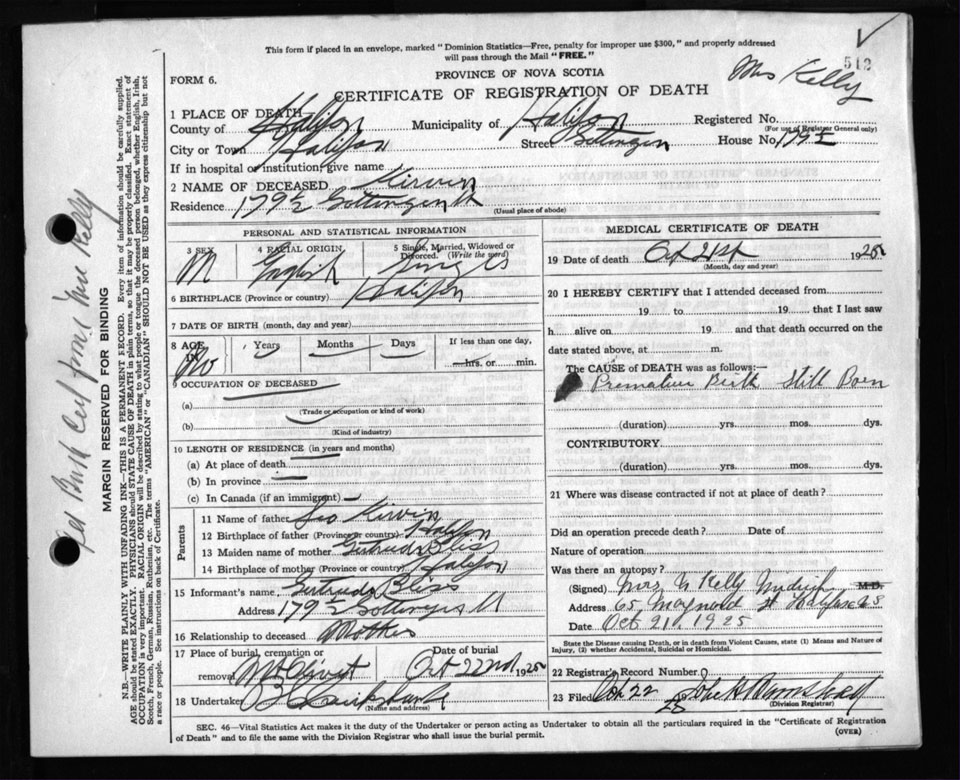 This form if placed in an envelope, marked "Dominion Statistics—Free, penalty for improper use $300," and properly addressed
will pass through the Mail "FREE."
512
Mrs Kelly
PROVINCE OF NOVA SCOTIA
FORM 6.
CERTIFICATE OF REGISTRATION OF DEATH
1 PLACE OF DEATH
County of Halifax Municipality of Halifax Registered No.
(For use of Registrar General only)
City or Town Halifax Street Gottingen House No. 179½
If in hospital or institution, give name
2 NAME OF DECEASED Kirvin
Residence 179½ Gottingen St
(Usual place of abode)
PERSONAL AND STATISTICAL INFORMATION
3 SEX 4 RACIAL ORIGIN 5 Single, Married, Widowed or Divorced. (Write the word)
M English Single
6 BIRTHPLACE (Province or country) Halifax
7 DATE OF BIRTH (month, day and year)
8 AGE IN Years Months Days If less than one day, hrs. or min.
9 OCCUPATION OF DECEASED
(a)
(Trade or occupation or kind of work)
(b)
(Kind of industry)
10 LENGTH OF RESIDENCE (in years and months)
(a) At place of death
(b) In province
(c) In Canada (if an immigrant)
Parents
11 Name of father Geo Kirvin
12 Birthplace of father (Province or country) Halifax
13 Maiden name of mother Gertrude Bliss
14 Birthplace of mother (Province or country) Halifax
15 Informant's name, Gertrude Bliss
Address 179½ Gottingen St
16 Relationship to deceased Mother
17 Place of burial, cremation or removal Mt Olivet Date of burial Oct 22nd 1925
18 Undertaker
(Name and address)
MEDICAL CERTIFICATE OF DEATH
19 Date of death Oct 21st 1925
(Month, day and year)
20 I HEREBY CERTIFY that I attended deceased from
19 to 19 that I last saw
h alive on 19 and that death occurred on the
date stated above, at m.
The CAUSE OF DEATH was as follows:—
Premature Birth Still Born
(duration) yrs. mos. dys.
CONTRIBUTORY
(duration) yrs. mos. dys.
21 Where was disease contracted if not at place of death?
Did an operation precede death? Date of
Nature of operation
Was there an autopsy?
(Signed) Mrs Kelly M.D.
Address 65 Maynard St Halifax
Date Oct 21 1925
State the Disease causing Death, or in death from Violent Causes, state (1) Means and Nature of
Injury, (2) whether Accidental, Suicidal or Homicidal.
22 Registrar's Record Number
23 Filed Oct 22 25
(Division Registrar)
SEC. 46—Vital Statistics Act makes it the duty of the Undertaker or person acting as Undertaker to obtain all the particulars required in the "Certificate of Registration
of Death" and to file the same with the Division Registrar who shall issue the burial permit.
(OVER)
MARGIN RESERVED FOR BINDING
N.B.—WRITE PLAINLY WITH UNFADING INK—THIS IS A PERMANENT RECORD. Every item of information should be carefully supplied.
AGE should be stated EXACTLY. PHYSICIANS should STATE CAUSE OF DEATH in plain terms, so that it may be properly classified. Exact statement of
OCCUPATION is very important. RACIAL ORIGIN will be described by stating to what people or tongue the deceased person belonged, whether English, Irish,
Scotch, French, German, Russian, Ruthenian, etc. The terms "AMERICAN" or "CANADIAN" SHOULD NOT BE USED as they express citizenship but not
a race or people. See instructions on back of Certificate.
Birth Cert from Mrs Kelly